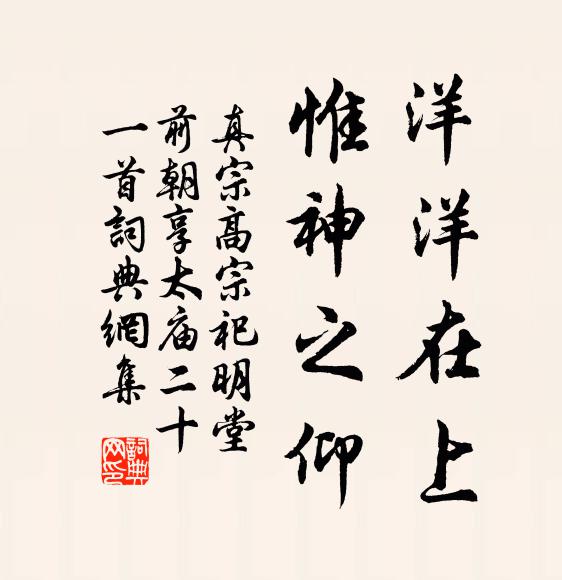 洋洋在上
惟神之仰
真宗高宗祀明堂
前朝享太庙二十
一首詞典網集
詞典网印